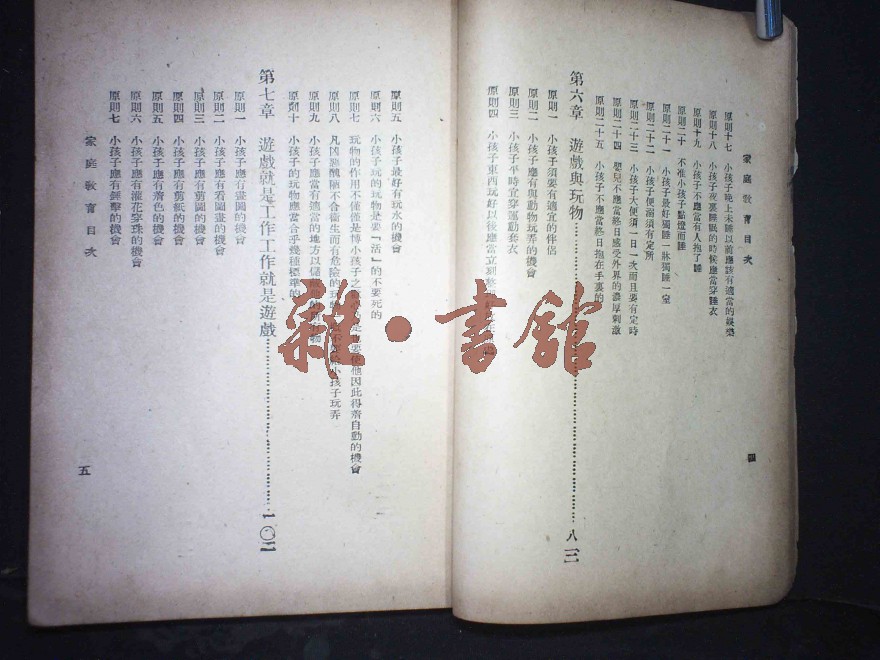 家庭教育目次
原則十七 小孩子晚上未睡以前應該有適當的娛樂
原則十八 小孩子夜裏睡眠的時候應當穿睡衣
原則十九 小孩子不應當有人抱了睡
原則二十 不准小孩子點燈而睡
原則二十一 小孩子最好獨睡一牀獨睡一室
原則二十二 小孩子便溺須有定所
原則二十三 小孩子大便須一日一次而且要有定時
原則二十四 嬰兒不應當終日感受外界的濃厚刺激
原則二十五 小孩子不應當終日抱在手裏的
第六章 遊戲與玩物 八三
原則一 小孩子須要有適宜的伴侶
原則二 小孩子應有與動物玩弄的機會
原則三 小孩子平時宜穿運動套衣
原則四 小孩子東西玩好以後應當立刻
四
原則五 小孩子最好有玩水的機會
原則六 小孩子玩的玩物是要「活」的不要死的
原則七 玩物的作用不僅僅是博小孩子之 也要使他因此得着自動的機會
原則八 凡凶惡醜陋不合衞生而有危險的玩物 小孩子玩弄
原則九 小孩子應當有適當的地方以儲藏他的所有物
原則十 小孩子的玩物應當合乎幾種標準的
第七章 遊戲就是工作工作就是遊戲 一〇二
原則一 小孩子應有畫圖的機會
原則二 小孩子應有看圖畫的機會
原則三 小孩子應有剪圖的機會
原則四 小孩子應有剪紙的機會
原則五 小孩子應有着色的機會
原則六 小孩子應有澆花穿珠的機會
原則七 小孩子應有錘擊的機會
家庭教育目次
五
雜·書館